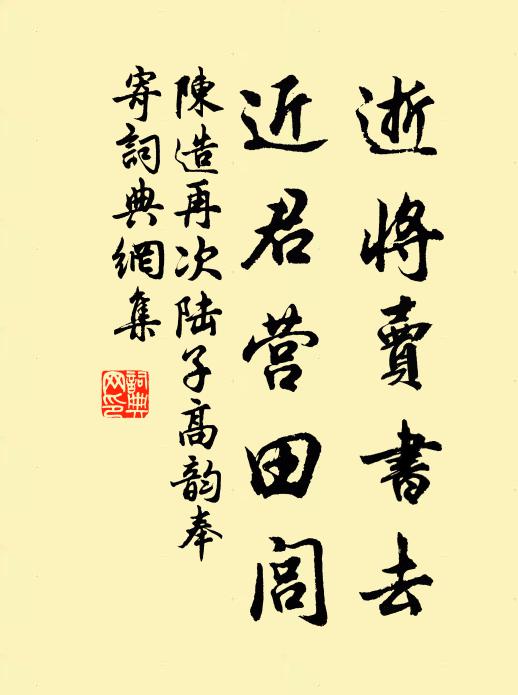 逝將賣書去
近君营田閭
陳造再次陆子高韵奉
寄詞典網集
詞典
网印